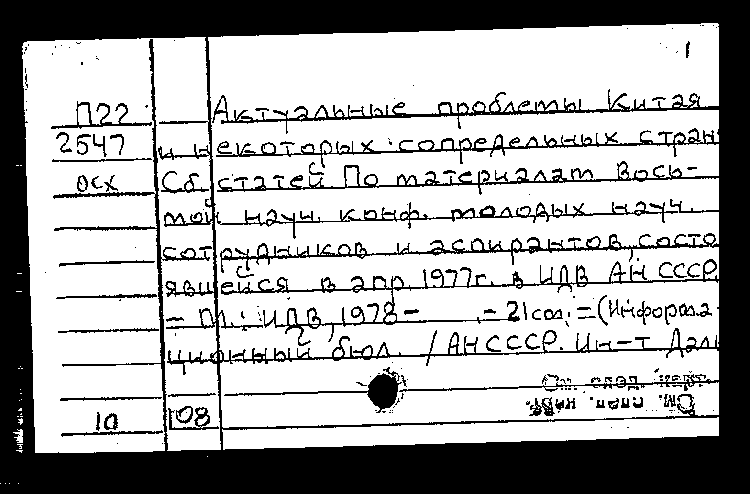 1
П22 Актуальные проблемы Китая
2547 и некоторых сопредельных стран
осх Сб. статей По материалам Вось-
мой науч. конф. молодых науч.
сотрудников и аспирантов, состо
явшейся в апр. 1977г. в ИДВ АН СССР.
– М.: ИДВ, 1978 – . – 21см. – (Информа
ционный бюл. / АН СССР. Ин-т Даль
См. след. карт.
См. след. карт.
10 108